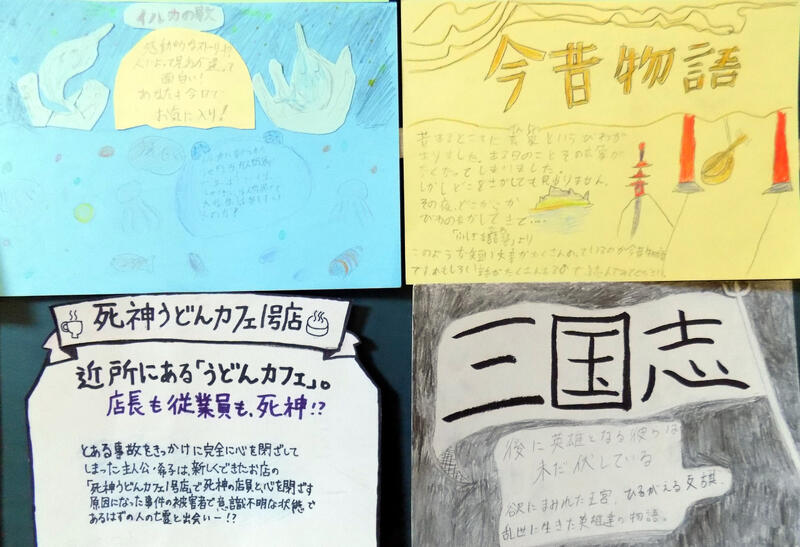 イルカの歌
感動的なストーリー!?
人によって見方が違って
面白い!
あなたも今日で
お気に入り!
今昔物語
昔あるところに玄象というびわが
ありました。ある日のことその玄象が
なくなってしまいました。
しかしどこをさがしても見当りません。
その夜、どこからか
びわの音がしてきて…
より
このような短い文章がたくさん入っているのが今昔物語
です。おもしろい話がたくさんある
死神うどんカフェ1号店
近所にある「うどんカフェ」。
店長も従業員も、死神!?
とある事故をきっかけに完全に心を閉ざして
しまった主人公・希子は、新しくできたお店の
「死神うどんカフェ1号店」で死神の店員と、心を閉ざす
原因になった事件の被害者で意識不明な状態で
あるはずの人の亡霊と出会い―!?
三国志
後に英雄となる彼らは
未だ伏している
欲にまみれた王宮、ひるがえる反旗、
乱世に生きた英雄達の物語。